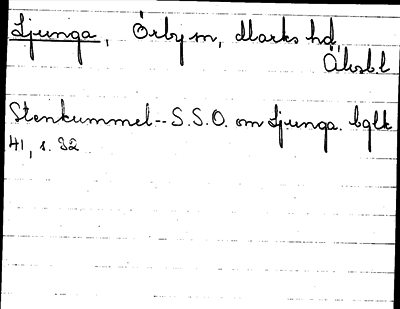 Ljunga, Örby sn, Marks hd,
Älvsbl
Stenkummel -- S.S.O. om Ljunga. bglk
41, s. 32